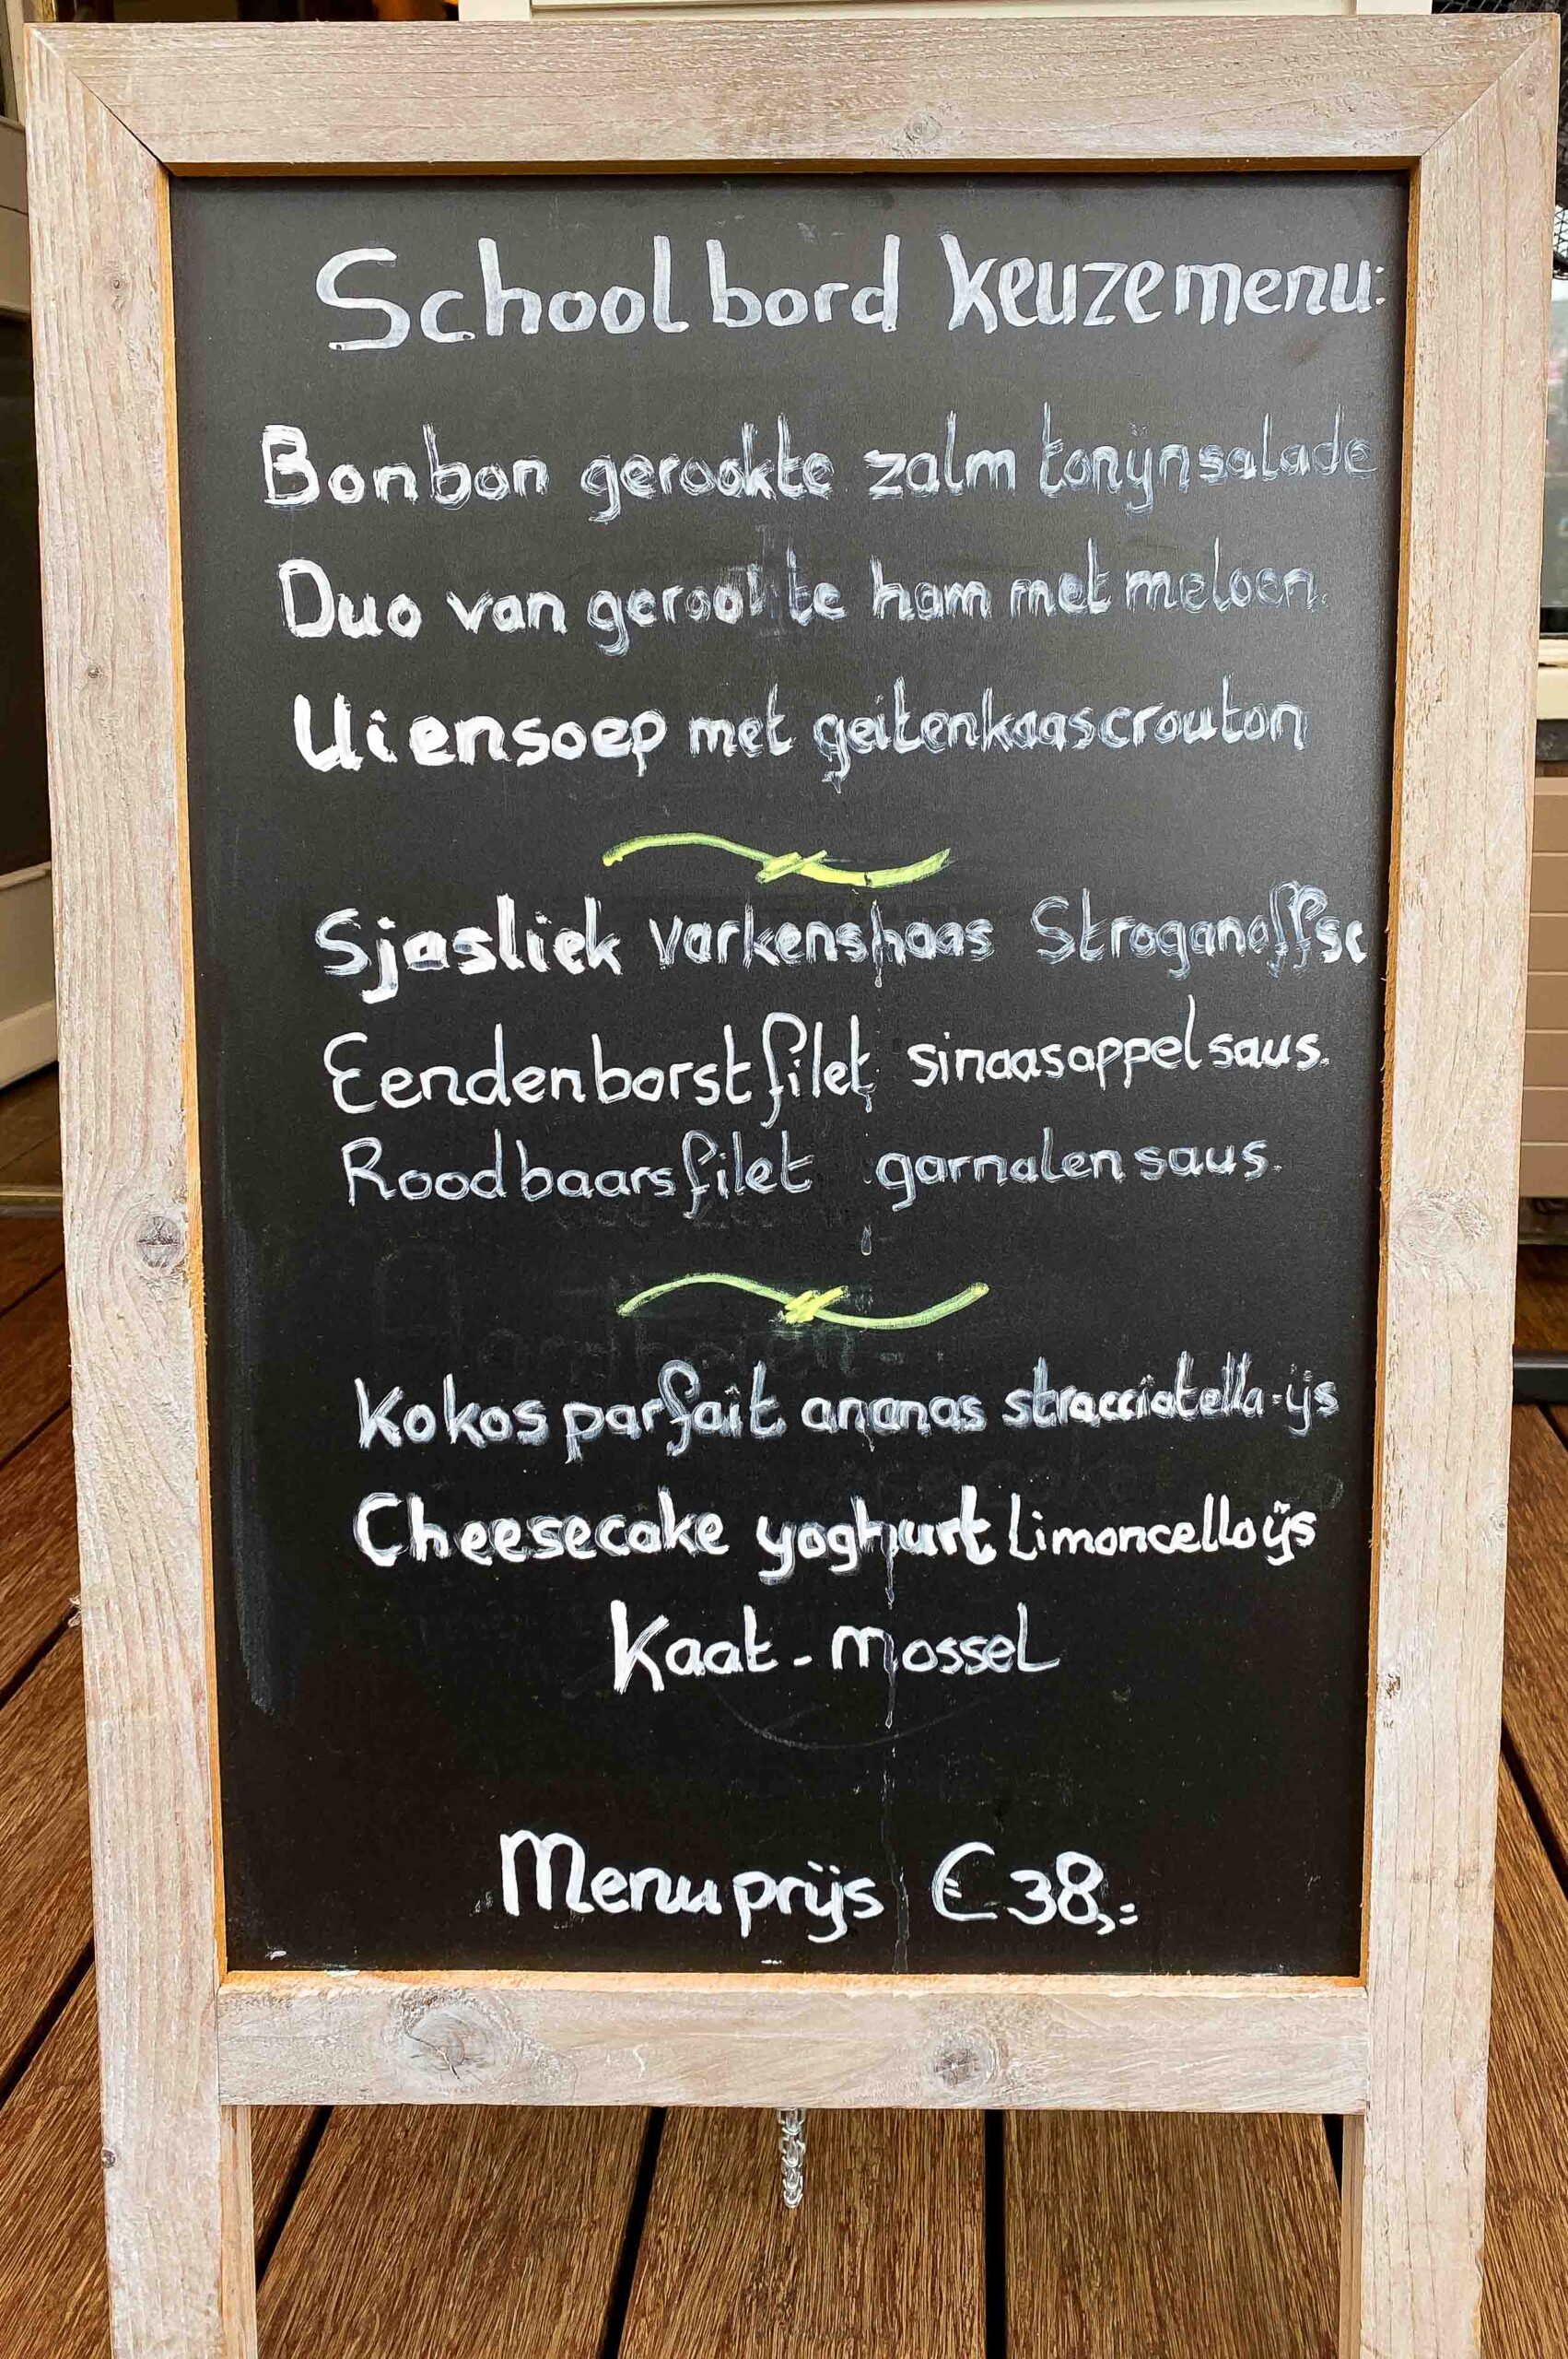 Schoolbord keuzemenu:
Bonbon gerookte zalm tonijnsalade
Duo van gerookte ham met meloen.
Uiensoep met geitenkaascrouton
Sjasliek varkenshaas Stroganoffsc
Eendenborstfilet sinaasappelsaus.
Roodbaarsfilet garnalensaus.
Kokosparfait ananas stracciatella-ijs
Cheesecake yoghurt Limoncelloijs
Kaat-mossel
Menuprijs €38,=